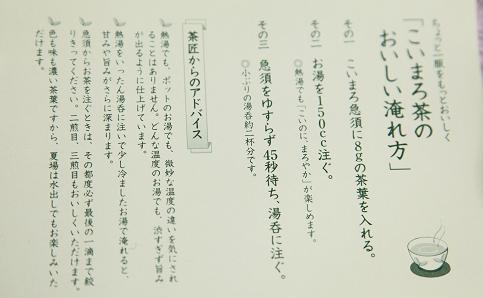 ちょっと一服をもっとおいしく
「こいまろ茶の
おいしい淹れ方」
その一 こいまろ急須に8gの茶葉を入れる。
その二 お湯を150cc注ぐ。
◎熱湯でも「こいのに、まろやか」が楽しめます。
その三 急須をゆすらず45秒待ち、湯呑に注ぐ。
◎小ぶりの湯呑約二杯分です。
茶匠からのアドバイス
熱湯でも、ポットのお湯でも、微妙な温度の違いを気にされ
ることはありません。どんな温度のお湯でも、渋すぎず旨み
が出るように仕上げています。
熱湯をいったん湯呑に注いで少し冷ましたお湯で淹れると、
甘みや旨みがさらに深まります。
急須からお茶を注ぐときは、その都度必ず最後の一滴まで絞
りきってください。二煎目、三煎目もおいしくいただけます。
色も味も濃い茶葉ですから、夏場は水出しでもお楽しみいた
だけます。